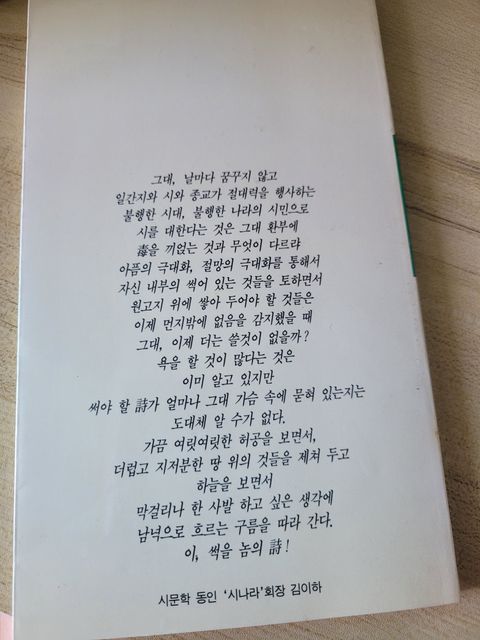 그대, 날마다 꿈꾸지 않고
일간지와 시와 종교가 절대력을 행사하는
불행한 시대, 불행한 나라의 시민으로
시를 대한다는 것은 그대 환부에
毒을 끼얹는 것과 무엇이 다르랴
아픔의 극대화, 절망의 극대화를 통해서
자신 내부의 썩어 있는 것들을 토하면서
원고지 위에 쌓아 두어야 할 것들은
이제 먼지밖에 없음을 감지했을 때
그대, 이제 더는 쓸것이 없을까?
욕을 할 것이 많다는 것은
이미 알고 있지만
써야 할 詩가 얼마나 그대 가슴 속에 묻혀 있는지는
도대체 알 수가 없다.
가끔 여릿여릿한 허공을 보면서,
더럽고 지저분한 땅 위의 것들을 제쳐 두고
하늘을 보면서
막걸리나 한 사발 하고 싶은 생각에
남녘으로 흐르는 구름을 따라 간다.
이, 썩을 놈의 詩!
시문학 동인 '시나라'회장 김이하